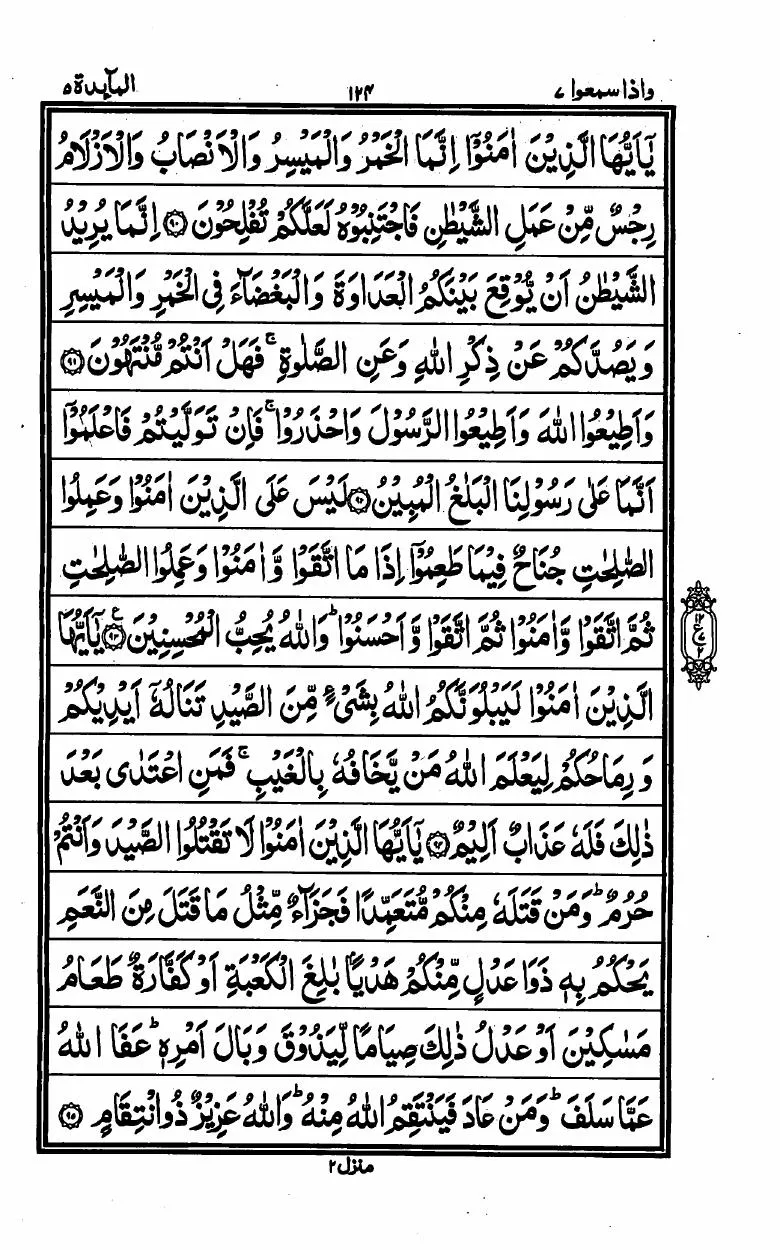 واذا سمعوا ۷ ۱۲۴ المآىِٕدة ۵
یٰۤاَیُّهَا الَّذِیْنَ اٰمَنُوْۤا اِنَّمَا الْخَمْرُ وَالْمَیْسِرُ وَالْاَنْصَابُ وَالْاَزْلَامُ
رِجْسٌ مِّنْ عَمَلِ الشَّیْطٰنِ فَاجْتَنِبُوْهُ لَعَلَّكُمْ تُفْلِحُوْنَ ﴿۹۰﴾ اِنَّمَا یُرِیْدُ
الشَّیْطٰنُ اَنْ یُّوْقِعَ بَیْنَكُمُ الْعَدَاوَةَ وَالْبَغْضَآءَ فِی الْخَمْرِ وَالْمَیْسِرِ
وَیَصُدَّكُمْ عَنْ ذِكْرِ اللّٰهِ وَعَنِ الصَّلٰوةِ ۚ فَهَلْ اَنْتُمْ مُّنْتَهُوْنَ ﴿۹۱﴾
وَاَطِیْعُوا اللّٰهَ وَاَطِیْعُوا الرَّسُوْلَ وَاحْذَرُوْا ۚ فَاِنْ تَوَلَّیْتُمْ فَاعْلَمُوْۤا
اَنَّمَا عَلٰی رَسُوْلِنَا الْبَلٰغُ الْمُبِیْنُ ﴿۹۲﴾ لَیْسَ عَلَی الَّذِیْنَ اٰمَنُوْا وَعَمِلُوا
الصّٰلِحٰتِ جُنَاحٌ فِیْمَا طَعِمُوْۤا اِذَا مَا اتَّقَوْا وَّاٰمَنُوْا وَعَمِلُوا الصّٰلِحٰتِ
ثُمَّ اتَّقَوْا وَّاٰمَنُوْا ثُمَّ اتَّقَوْا وَّاَحْسَنُوْا ؕ وَاللّٰهُ یُحِبُّ الْمُحْسِنِیْنَ ﴿۹۳﴾ ع یٰۤاَیُّهَا
الَّذِیْنَ اٰمَنُوْا لَیَبْلُوَنَّكُمُ اللّٰهُ بِشَیْءٍ مِّنَ الصَّیْدِ تَنَالُهٗۤ اَیْدِیْكُمْ
وَرِمَاحُكُمْ لِیَعْلَمَ اللّٰهُ مَنْ یَّخَافُهٗ بِالْغَیْبِ ۚ فَمَنِ اعْتَدٰی بَعْدَ
ذٰلِكَ فَلَهٗ عَذَابٌ اَلِیْمٌ ﴿۹۴﴾ یٰۤاَیُّهَا الَّذِیْنَ اٰمَنُوْا لَا تَقْتُلُوا الصَّیْدَ وَاَنْتُمْ
حُرُمٌ ؕ وَمَنْ قَتَلَهٗ مِنْكُمْ مُّتَعَمِّدًا فَجَزَآءٌ مِّثْلُ مَا قَتَلَ مِنَ النَّعَمِ
یَحْكُمُ بِهٖ ذَوَا عَدْلٍ مِّنْكُمْ هَدْیًۢا بٰلِغَ الْكَعْبَةِ اَوْ كَفَّارَةٌ طَعَامُ
مَسٰكِیْنَ اَوْ عَدْلُ ذٰلِكَ صِیَامًا لِّیَذُوْقَ وَبَالَ اَمْرِهٖ ؕ عَفَا اللّٰهُ
عَمَّا سَلَفَ ؕ وَمَنْ عَادَ فَیَنْتَقِمُ اللّٰهُ مِنْهُ ؕ وَاللّٰهُ عَزِیْزٌ ذُو انْتِقَامٍ ﴿۹۵﴾
۱۲
ع ۷
۲
منزل ۲